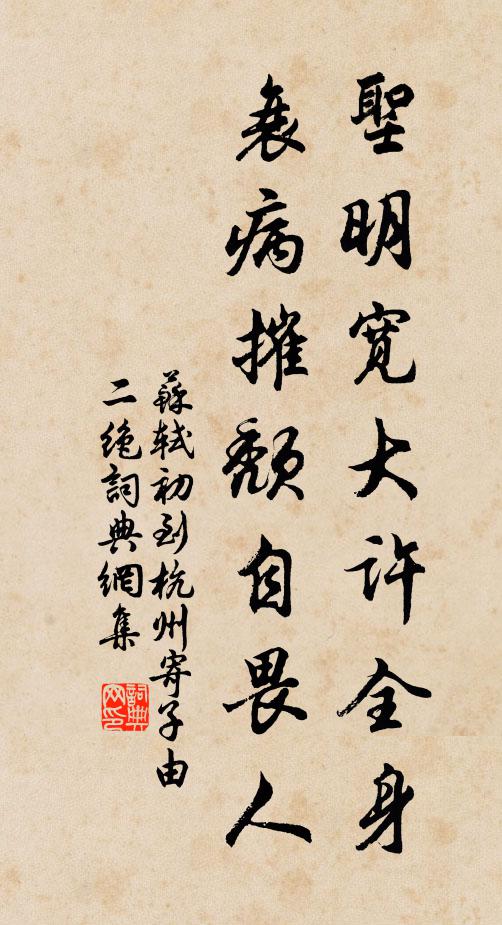 聖明寬大許全身
衰病摧頹自畏人
蘇軾初到杭州寄子由
二絕詞典網集
詞典
网印